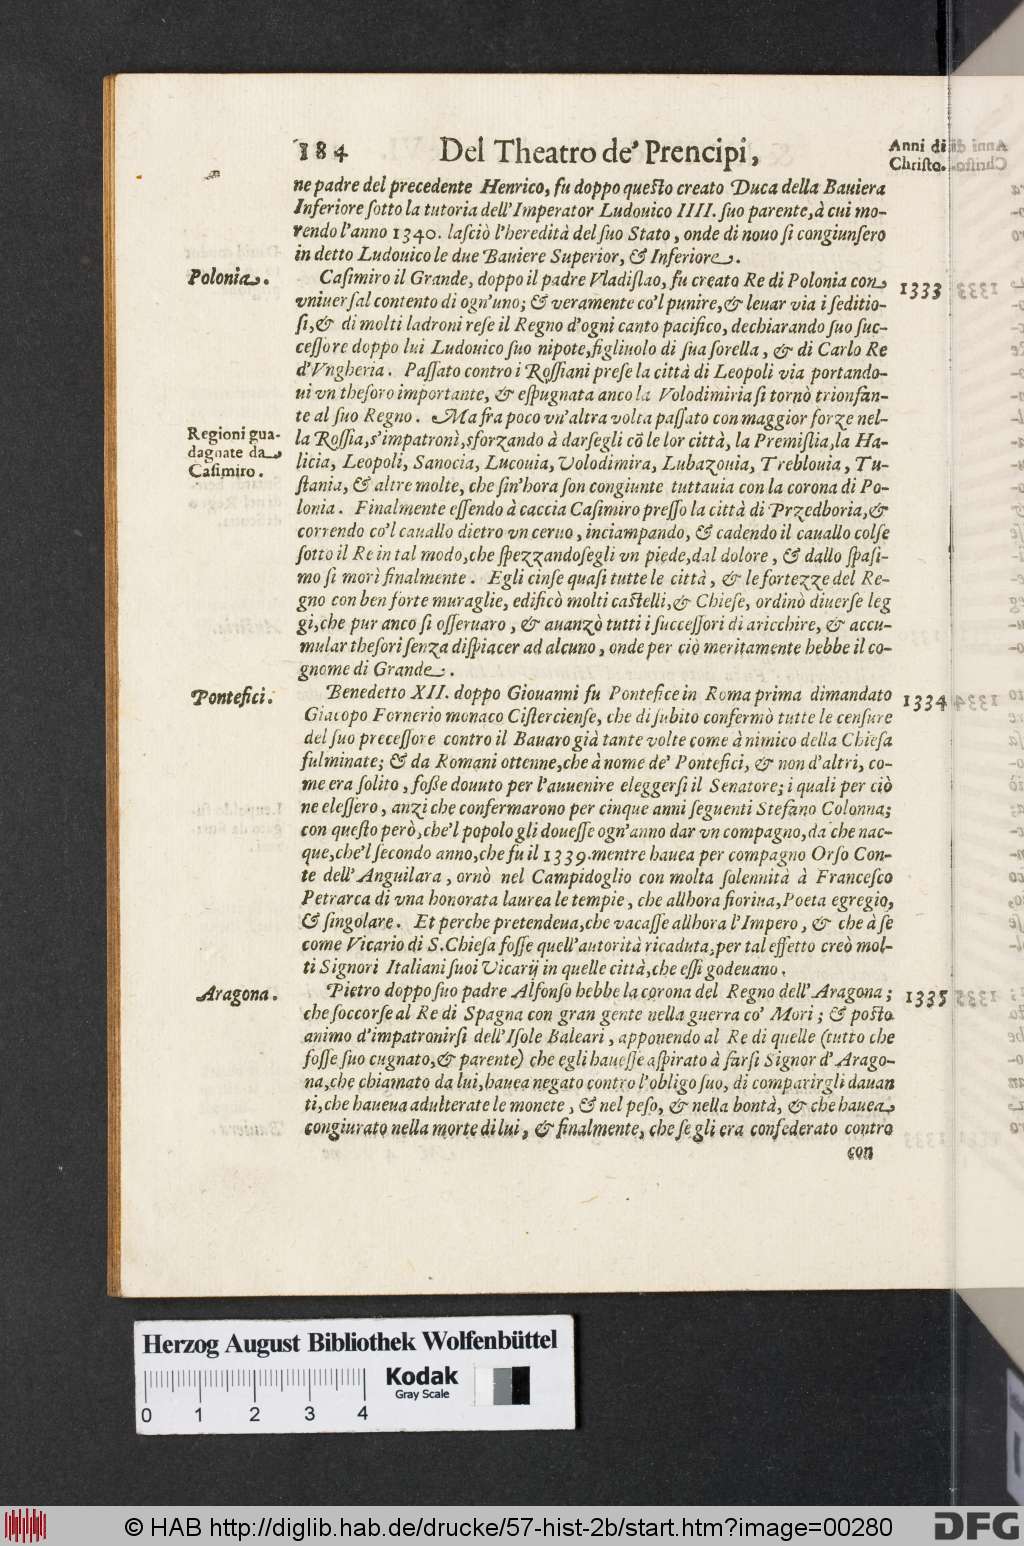 184 Del Theatro de' Prencipi,
Anni di
Christo.
ne padre del precedente Henrico, fu doppo questo creato Duca della Bauiera
Inferiore sotto la tutoria dell'Imperator Ludouico IIII. suo parente, à cui mo-
rendo l'anno 1340. lasciò l'heredità del suo Stato, onde di nouo si congiunsero
in detto Ludouico le due Bauiere Superior, & Inferiore.
Polonia.
Casimiro il Grande, doppo il padre Vladislao, fu creato Re di Polonia con
1333
vniuersal contento di ogn'uno; & veramente co'l punire, & leuar via i seditio-
si, & di molti ladroni rese il Regno d'ogni canto pacifico, dechiarando suo suc-
cessore doppo lui Ludouico suo nipote, figliuolo di sua sorella, & di Carlo Re
d'Vngheria. Passato contro i Rossiani prese la città di Leopoli via portando-
ui vn thesoro importante, & espugnata anco la Volodimiria si tornò trionfan-
te al suo Regno. Ma fra poco vn'altra volta passato con maggior forze nel-
Regioni gua-
dagnate da
Casimiro.
la Rossia, s'impatronì, sforzando à darsegli cõ le lor città, la Premislia, la Ha-
licia, Leopoli, Sanocia, Lucouia, Volodimira, Lubazouia, Treblouia, Tu-
stania, & altre molte, che sin'hora son congiunte tuttauia con la corona di Po-
lonia. Finalmente essendo à caccia Casimiro presso la città di Przedboria, &
correndo co'l cauallo dietro vn ceruo, inciampando, & cadendo il cauallo colse
sotto il Re in tal modo, che spezzandosegli vn piede, dal dolore, & dallo spasi-
mo si morì finalmente. Egli cinse quasi tutte le città, & le fortezze del Re-
gno con ben forte muraglie, edificò molti castelli, & Chiese, ordinò diuerse leg
gi, che pur anco si osseruaro, & auanzò tutti i successori di aricchire, & accu-
mular thesori senza dispiacer ad alcuno, onde per ciò meritamente hebbe il co-
gnome di Grande.
Pontefici.
Benedetto XII. doppo Giouanni fu Pontefice in Roma prima dimandato
1334
Giacopo Fornerio monaco Cisterciense, che di subito confermò tutte le censure
del suo precessore contro il Bauaro già tante volte come à nimico della Chiesa
fulminate; & da Romani ottenne, che à nome de' Pontefici, & non d'altri, co-
me era solito, foße douuto per l'auuenire eleggersi il Senatore; i quali per ciò
ne elessero, anzi che confermarono per cinque anni seguenti Stefano Colonna;
con questo però, che'l popolo gli douesse ogn'anno dar vn compagno, da che nac-
que, che'l secondo anno, che fu il 1339. mentre hauea per compagno Orso Con-
te dell'Anguilara, ornò nel Campidoglio con molta solennità à Francesco
Petrarca di vna honorata laurea le tempie, che allhora fioriua, Poeta egregio,
& singolare. Et perche pretendeua, che vacasse allhora l'Impero, & che à se
come Vicario di S. Chiesa fosse quell'autorità ricaduta, per tal effetto creò mol-
ti Signori Italiani suoi Vicarij in quelle città, che essi godeuano.
Aragona.
Pietro doppo suo padre Alfonso hebbe la corona del Regno dell'Aragona;
1335
che soccorse al Re di Spagna con gran gente nella guerra co' Mori; & posto
animo d'impatronirsi dell'Isole Baleari, apponendo al Re di quelle (tutto che
fosse suo cugnato, & parente) che egli hauesse aspirato à farsi Signor d'Arago-
na, che chiamato da lui, hauea negato contro l'obligo suo, di comparirgli dauan
ti, che haueua adulterate le monete, & nel peso, & nella bontà, & che hauea
congiurato nella morte di lui, & finalmente, che se gli era confederato contro
con
Herzog August Bibliothek Wolfenbüttel
0 1 2 3 4
Kodak
Gray Scale
© HAB http://diglib.hab.de/drucke/57-hist-2b/start.htm?image=00280
DFG